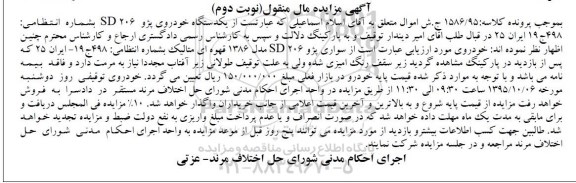 آگهی مزایده مال منقول(نوبت دوم)
بموجب پرونده کلاسه:۱۵۸۶/۹۵ ج.ش اموال متعلق به آقای اسلام اسماعیلی که عبارتست از یکدستگاه خودروی پژو SD ۲۰۶ بشماره انتظامی:
۴۹۸ج۱۹ ایران ۲۵ در قبال طلب آقای امیر دیندار توقیف و به پارکینگ دلالت و سپس به کارشناس رسمی دادگستری ارجاع و کارشناس محترم چنین
اظهار نظر نموده اند: خودروی مورد ارزیابی عبارت است از سواری پژو SD ۲۰۶ مدل ۱۳۸۶ قهوه ای متالیک بشماره انتظامی: ۴۹۸ج۱۹- ایران ۲۵ که
پس از بازدید در پارکینگ مشاهده گردید زیر سقف رنگ امیزی شده ولی به علت توقیف طولانی زیر آفتاب مجددا نیاز به مرمت دارد و فاقد بیمه
نامه می باشد و با توجه به موارد ذکر شده قیمت پایه خودرو در بازار فعلی مبلغ ۱۵۰/۰۰۰/۰۰۰ ریال تعیین می گردد. خودروی توقیفی روز دوشنبه
مورخه ۱۳۹۵/۱۰/۰۶ از ساعت ۰۹:۳۰ الی ۱۱:۳۰ از طریق مزایده در واحد اجرای احکام مدنی شورای حل اختلاف مرند مستقر در دادسرا به فروش
خواهد رفت مزایده از قیمت پایه شروع و به بالاترین و آخرین قیمت اعلامی از جانب خریداران واگذار خواهد شد. ۱۰٪ مزایده فی المجلس دریافت و
برای مابقی به مدت یک ماه مهلت داده خواهد شد که در صورت انصراف و یا عدم پرداخت مبلغ واریزی به نفع دولت ضبط و مزایده تجدید خواهد
شد. طالبین جهت کسب اطلاعات بیشتر و بازدید از مورد مزایده می توانند پنج روز قبل از موعد مزایده به واحد اجرای احکام مدنی شورای حل
اختلاف مرند مراجعه و در جلسه مزایده شرکت نمایند.
اجرای احکام مدنی شورای حل اختلاف مرند- عزتی